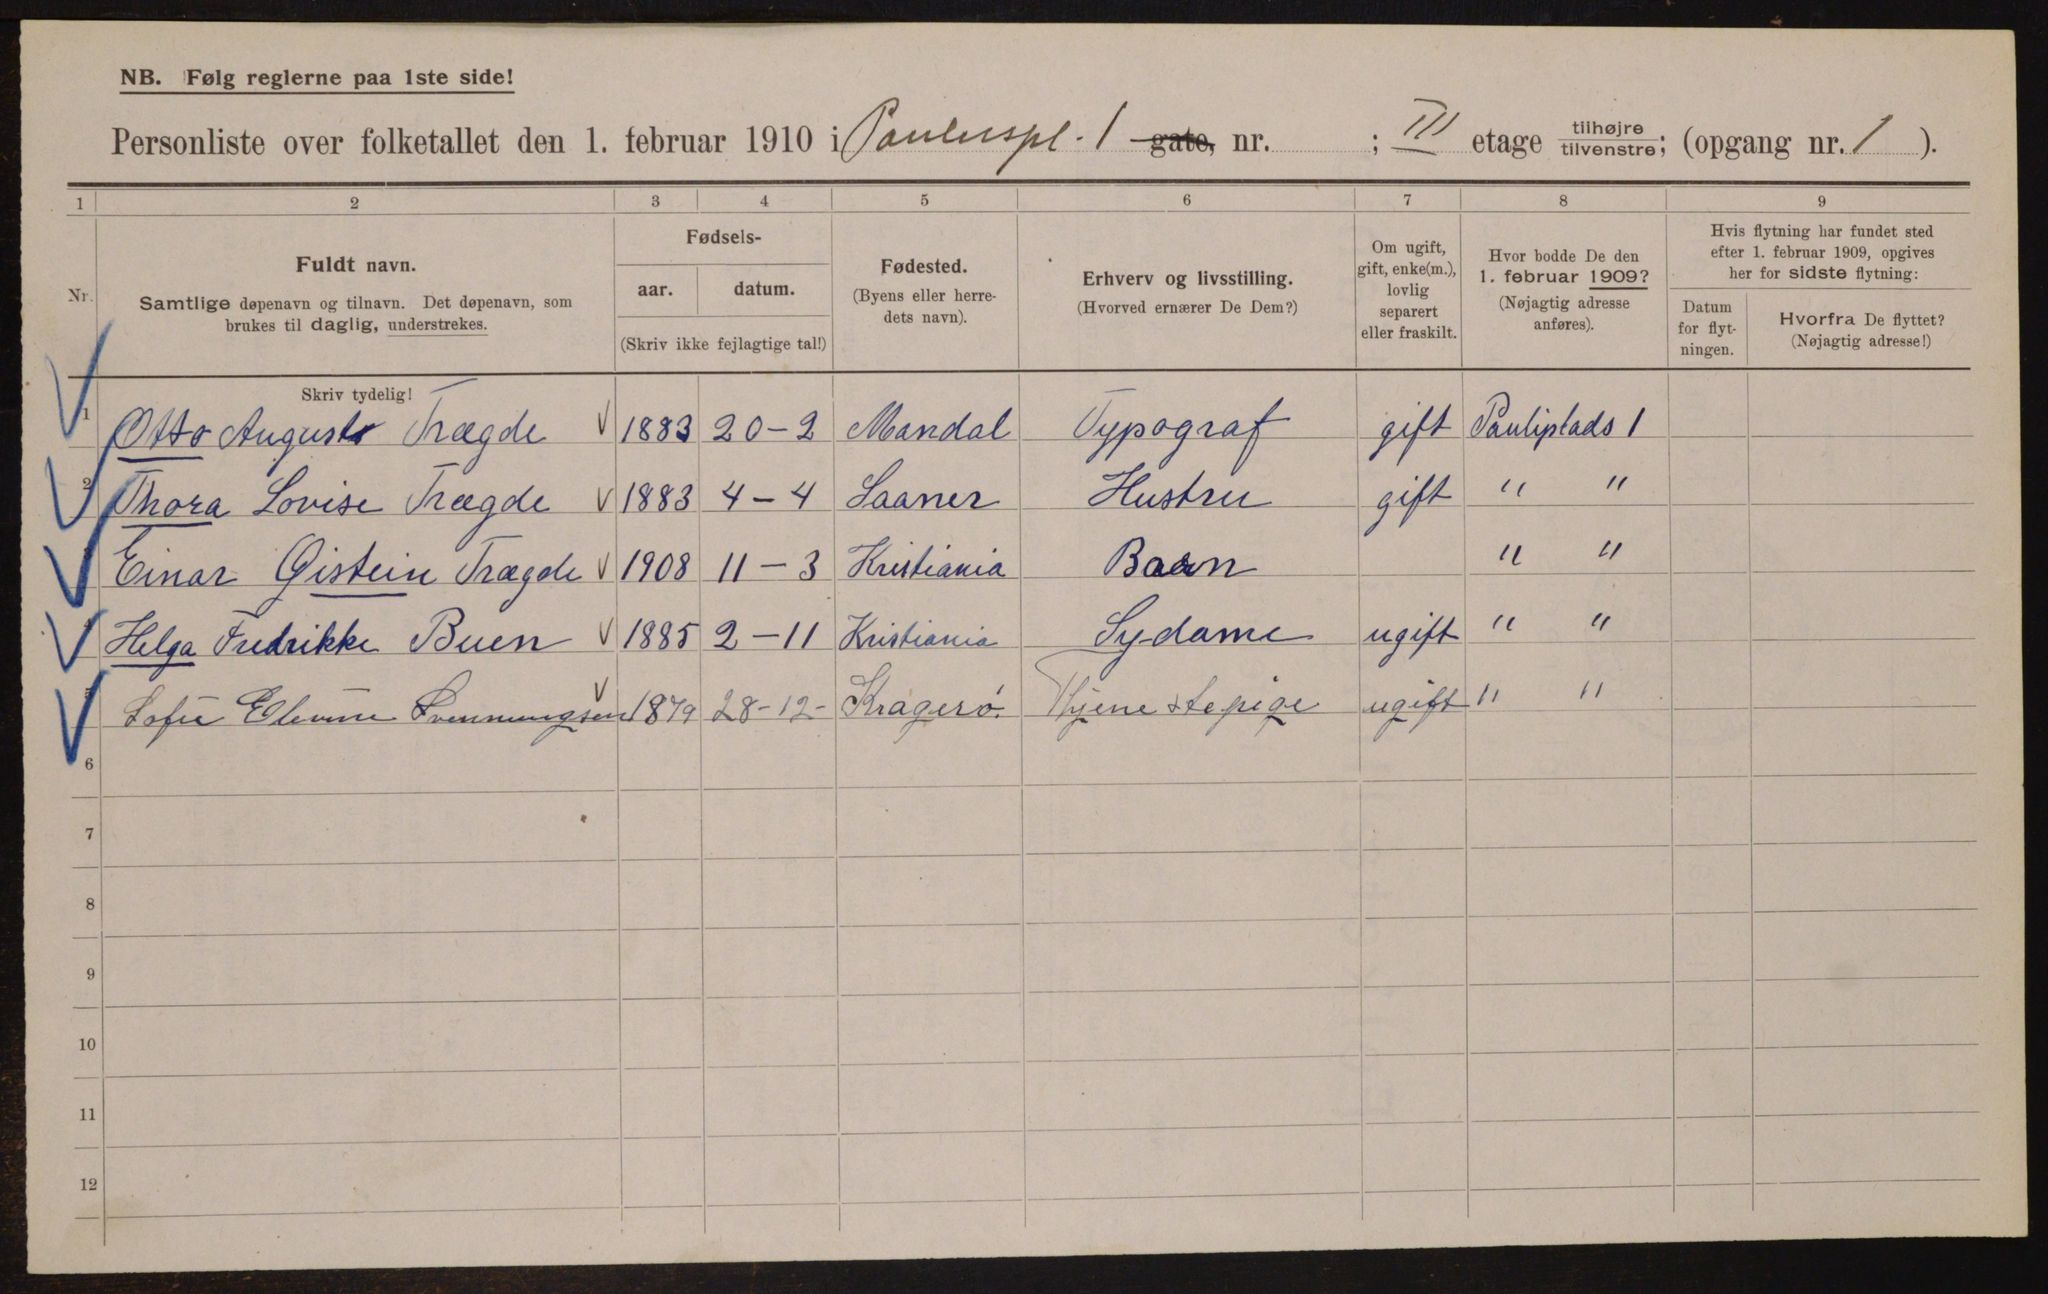 NB. Følg reglerne paa 1ste side!
Personliste over folketallet den 1. februar 1910 i Pauluspl. 1 gate, nr. ; III etage tilhøjre tilvenstre; (opgang nr. 1 ).
1 2 3 4 5 6 7 8 9
Nr.
Fuldt navn.
Samtlige døpenavn og tilnavn. Det døpenavn, som
brukes til daglig, understrekes.
Skriv tydelig!
Fødsels-
aar. datum.
(Skriv ikke fejlagtige tal!)
Fødested.
(Byens eller herre-
dets navn).
Erhverv og livsstilling.
(Hvorved ernærer De Dem?)
Om ugift,
gift, enke(m.),
lovlig
separert
eller fraskilt.
Hvor bodde De den
1. februar 1909?
(Nøjagtig adresse
anføres).
Hvis flytning har fundet sted
efter 1. februar 1909, opgives
her for sidste flytning:
Datum
for flyt-
ningen.
Hvorfra De flyttet?
(Nøjagtig adresse!)
1 Otto August Trægde 1883 20-2 Mandal Typograf gift Pauliplads 1
2 Thora Lovise Trægde 1883 4-4 Saaner Hustru gift " "
3 Einar Øistein Trægde 1908 11-3 Kristiania Barn " "
Helga Fredrikke Buen 1885 2-11 Kristiania Sydame ugift " "
5 Sofie Elevine Svenningsen 1879 28-12- Kragerø. Tjenestepige ugift " "
6
7
8
9
10
11
12